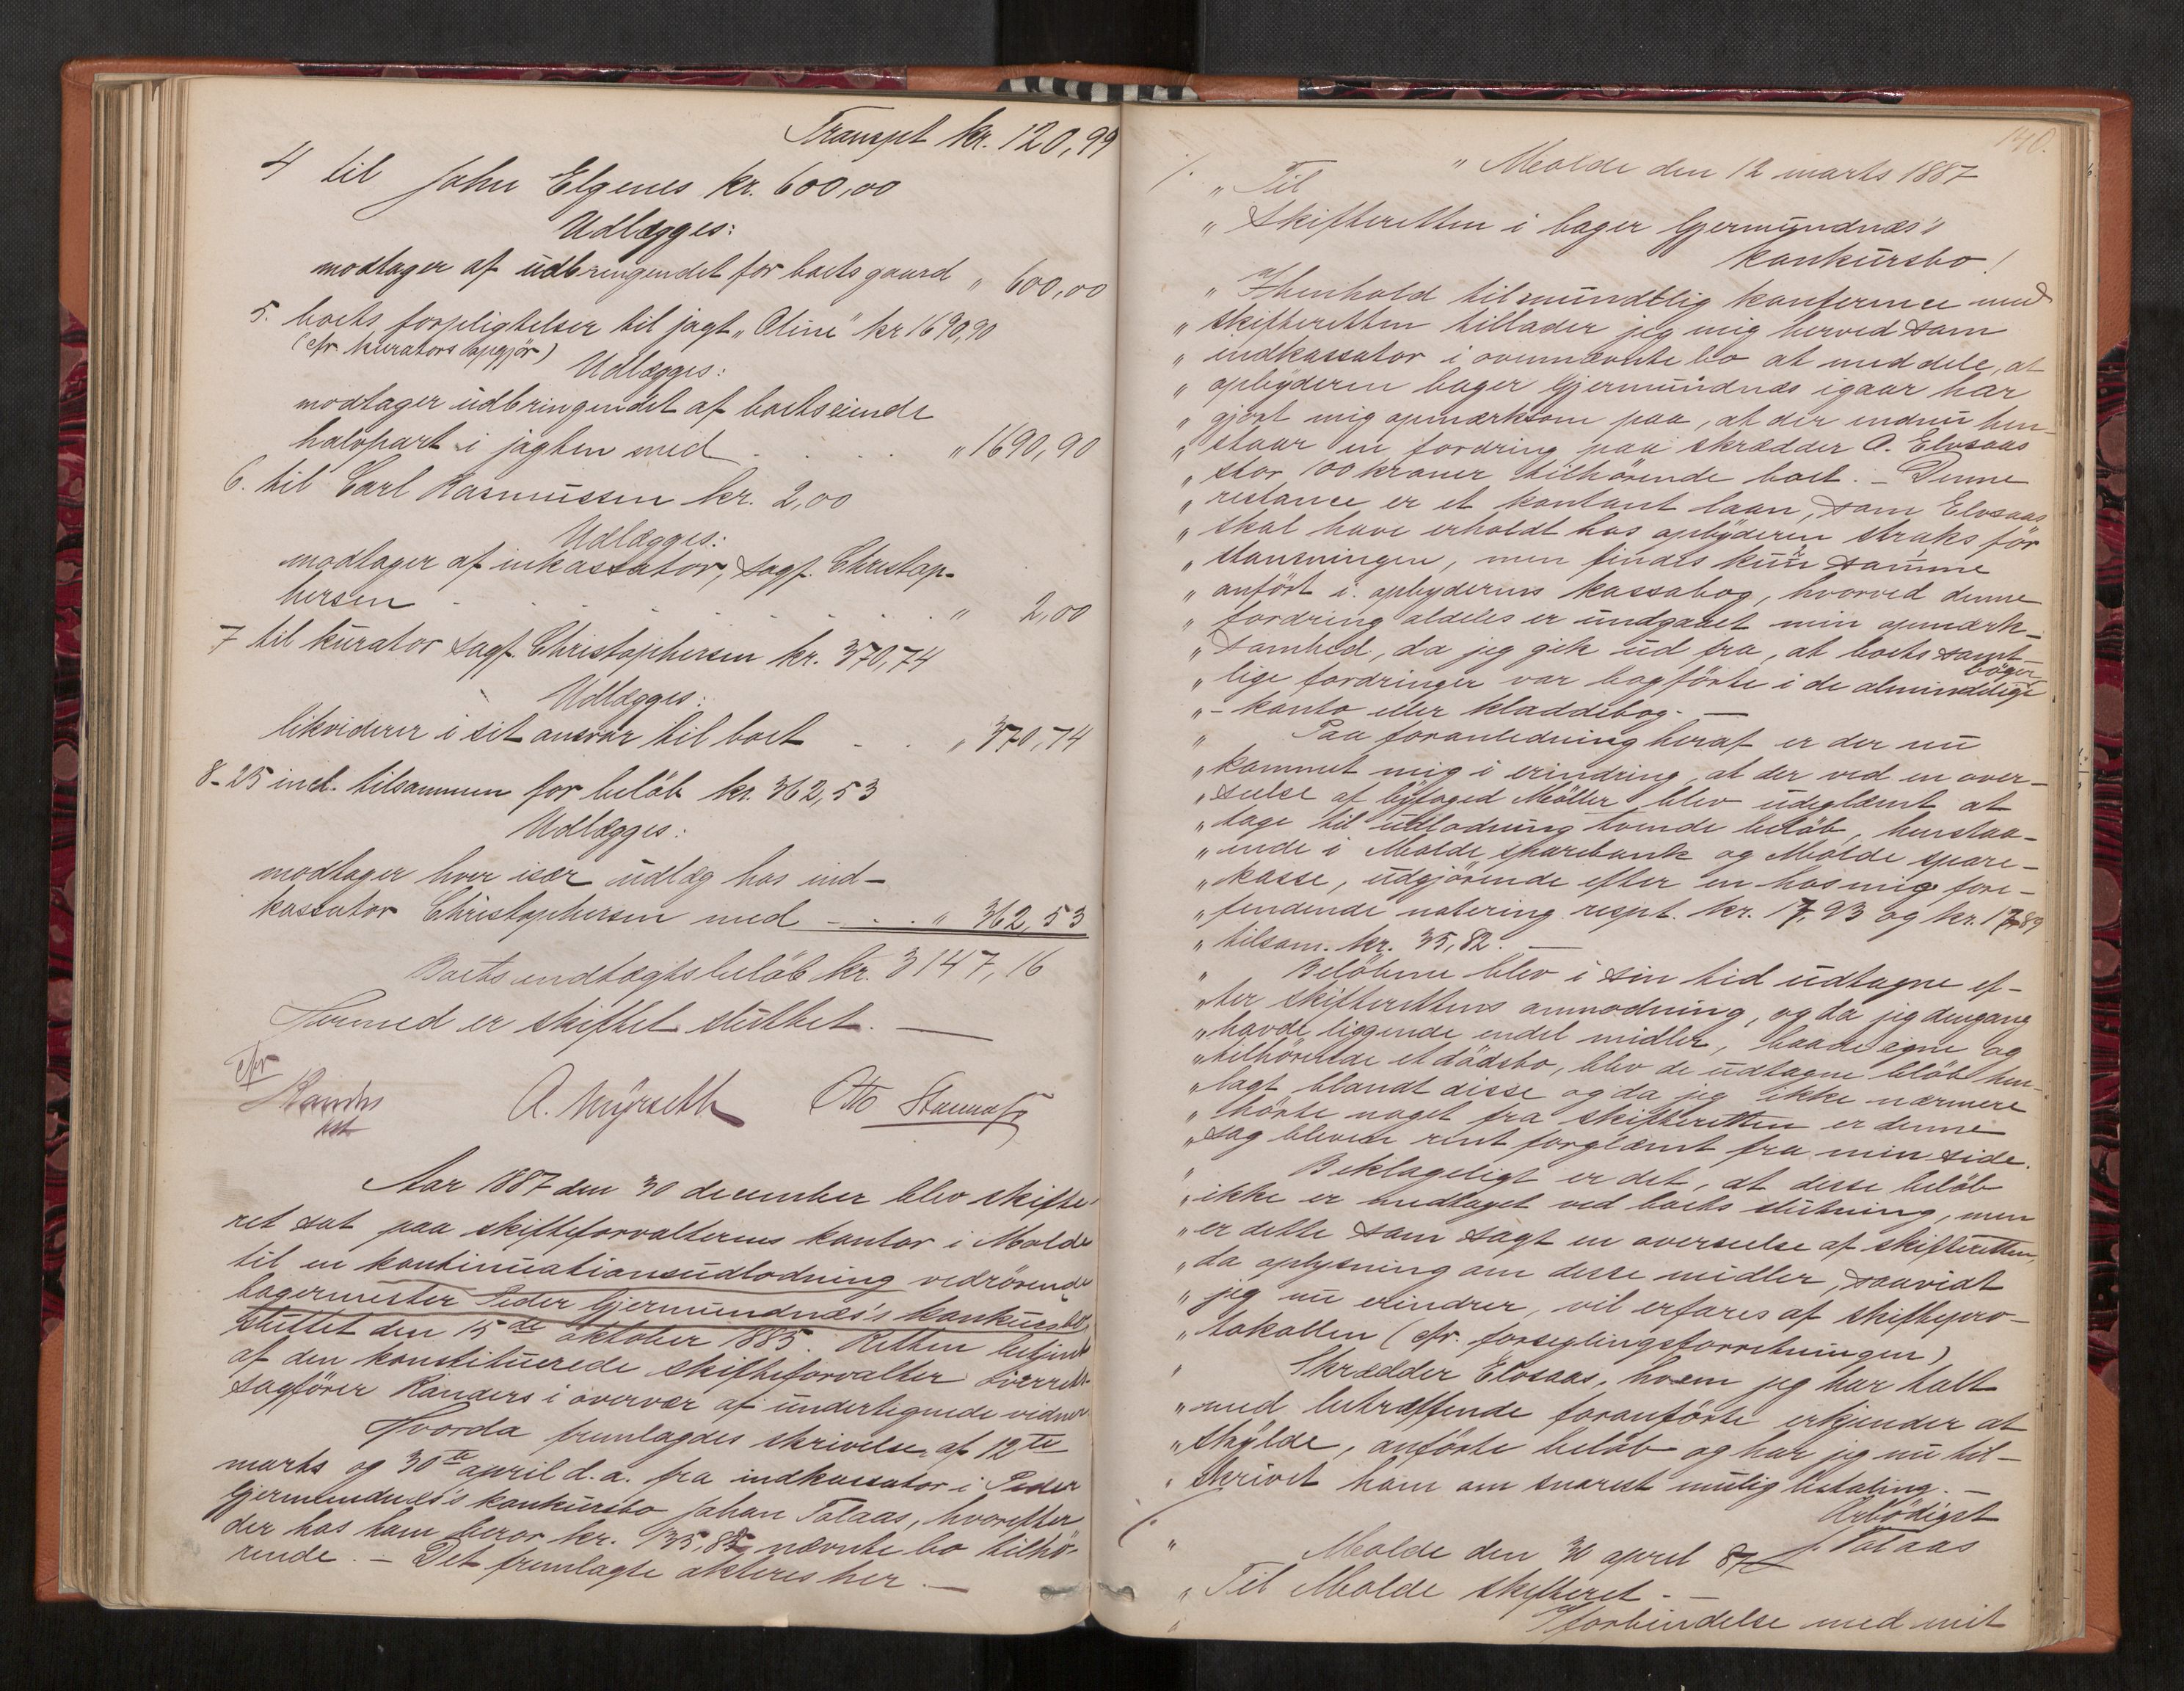 Transpt kr. 120,99
4 til John Elgenes kr. 600,00
Udlægges:
modtager af udbringendet for boets gaard " 600,00
5. boets forpligtelser til jagt "Oline" kr 1690,90
(cfr kurators opgjør)
Udlægges:
modtager udbringendet af boets eiende
halvpart i jagten med . . . . " 1690,90
6. til Carl Rasmussen kr. 2,00
Udlægges:
modtager af inkassator, sagf. Christop-
hersen . . . . . . . " 2,00
7 til kurator sagf. Christophersen kr. 370,74
Udlægges:
likviderer i sit ansvar til boet . . " 370,74
8-25 incl. tilsammen for beløb kr. 362,53
Udlægges:
modtager hver især udlæg hos ind-
kassator Christophersen med - . . " 362,53
Boets indtægtsbeløb kr. 3147,16
Hermed er skiftet sluttet. —
cfr
Randers
cst
A. Myrseth Otto
Aar 1887 den 30 december blev skifte-
ret sat paa skifteforvalterens kontor i Molde
til en kontinuationsudlodning vedrørende
bagermester Peder Gjermundnæs's konkursbo,
sluttet den 15de oktober 1885. Retten betjent
af den konstituerede skifteforvalter overrets-
sagfører Randers i overvær af undertegnede vidner.
Hvorda fremlagdes skrivelse af 12te
marts og 30te april d.a. fra indkassator i Peder
Gjermundnæs's konkursbo Johan Tolaas, hvorefter
der hos ham beror kr. 135,82 nævnte bo tilhø-
rende. - Det fremlagte akteres her. —
140.
/. " Molde den 12 marts 1887
" Til
" Skifteretten i bager Gjermundnæs's
konkursbo!
" I henhold til mundtlig konference med
" skifteretten tillader jeg mig herved som
" indkassator i ovennævnte bo at meddele, at
" opbyderen bager Gjermundnæs igaar har
" gjort mig opmærksom paa, at der endnu hen-
" staar en fordring paa skrædder A. Elvsaas
" stor 100 kroner tilhørende boet. - Denne
" restance er et kontant laan, som Elvsaas
" skal have erholdt hos opbyderen straks før
" standsningen, men findes kun samme
" anført i opbyderens kassabog, hvorved denne
" fordring aldeles er undgaaet min opmærk-
" somhed, da jeg gik ud fra, at boets samt-
" lige fordringer var bogførte i de almindelige bøger
" - konto eller kladdebog. —
" Paa foranledning heraf er der nu
" kommet mig i erindring, at der ved en over-
" seelse af byfoged Møller blev udeglemt at
" tage til udlodning tvende beløb, henstaa-
" ende i Molde sparebank og Molde spare-
" kasse, udgjørende efter en hos mig fore-
" findende notering respt. kr. 17,93 og kr. 17,89
" tilsam. kr. 35,82. —
" Beløbene blev i sin tid udtagne ef-
" ter skifterettens anmodning, og da jeg dengang
" havde liggende endel midler, baade egne og
" tilhørende et dødsbo, blev de udtagne bløb hen-
" lagt blandt disse og da jeg ikke nærmere
" hørte noget fra skifteretten er denne
" sag bleven rent forglemt fra min side.
" Beklageligt er det, at disse beløb
" ikke er medtaget ved boets slutning, men
" er dette som sagt en overseelse af skifteretten,
" da oplysning om disse midler, saavidt
" jeg nu erindrer, vil erfares af skiftepro-
" tokollen (cfr. forseglingsforretningen)
" Skrædder Elvsaas, hvem jeg har talt
" med betræffende foranførte erkjender at
" skylde, anførte beløb og har jeg nu til-
" skrivet ham om snarest mulig betaling. —
Ærbødigst
J. Tolaas
/. " Molde den 30 april 87
" Til Molde skifteret. —
" I forbindelse med mit